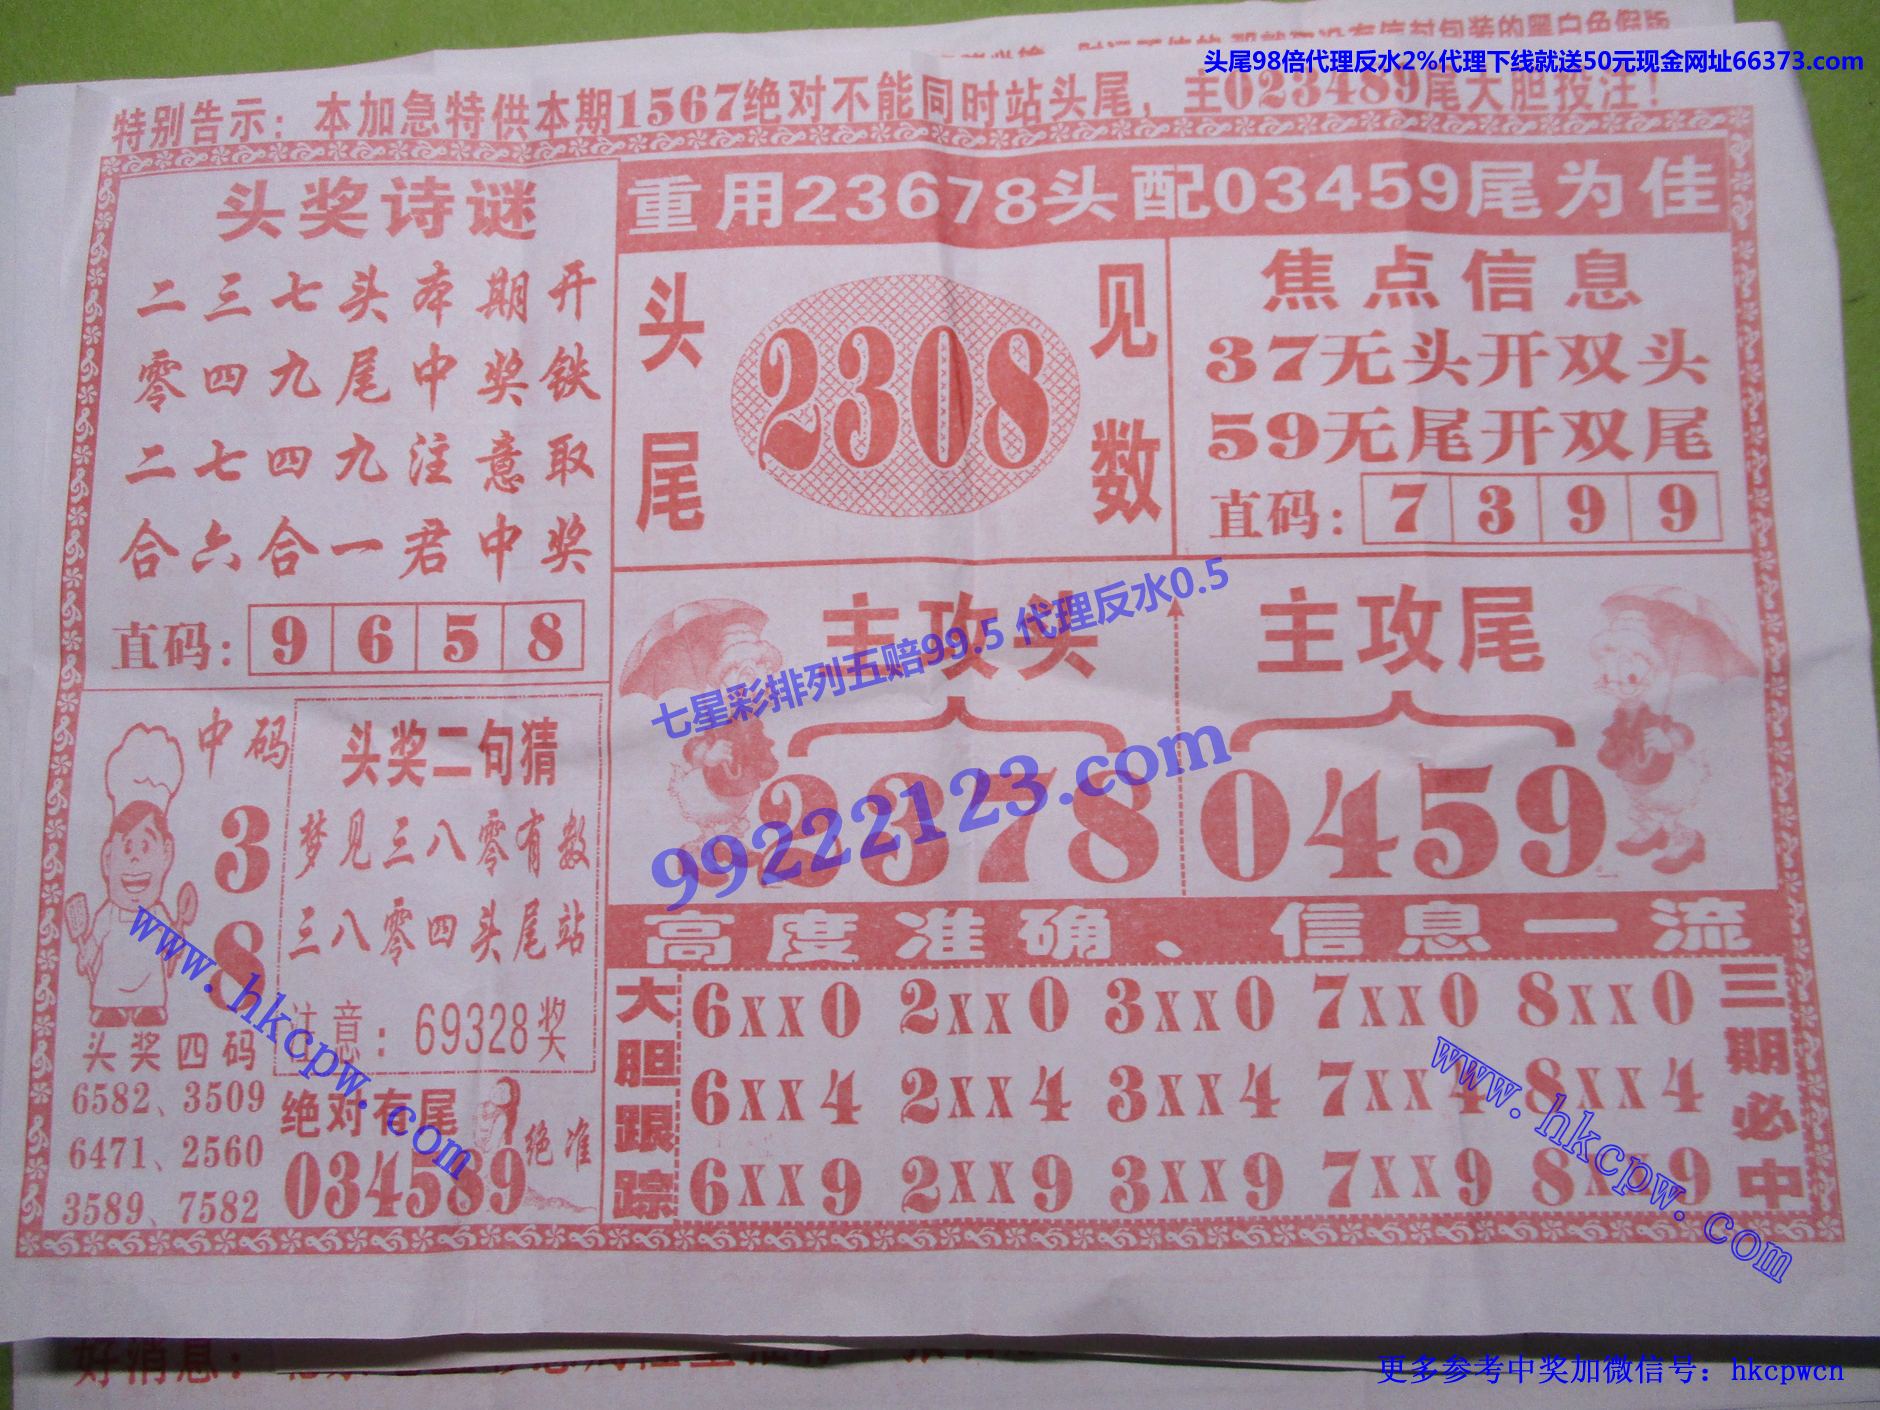 头尾98倍代理反水2%代理下线就送50元现金网址66373.com
特别告示：本加急特供本期1567绝对不能同时站头尾，主023489尾大胆投注！
头奖诗谜
二三七头本期开
零四九尾中奖铁
二七四九注意取
合六合一君中奖
直码：9658
重用23678头配03459尾为佳
头尾
2308
见数
焦点信息
37无头开双头
59无尾开双尾
直码：7399
中码
3
8
头奖四码
6582、3509
6471、2560
3589、7582
头奖二句猜
梦见三八零有数
三八零四头尾站
注意：69328奖
绝对有尾
034589
绝准
主攻头
2378
主攻尾
0459
七星彩排列五赔99.5 代理反水0.5
99222123.com
高度准确、信息一流
大胆跟踪
6XX0 2XX0 3XX0 7XX0 8XX0
6XX4 2XX4 3XX4 7XX4 8XX4
6XX9 2XX9 3XX9 7XX9 8XX9
三期必中
www.hkcpw.com
www.hkcpw.com
好消息：
更多参考中奖加微信号：hkcpwcn